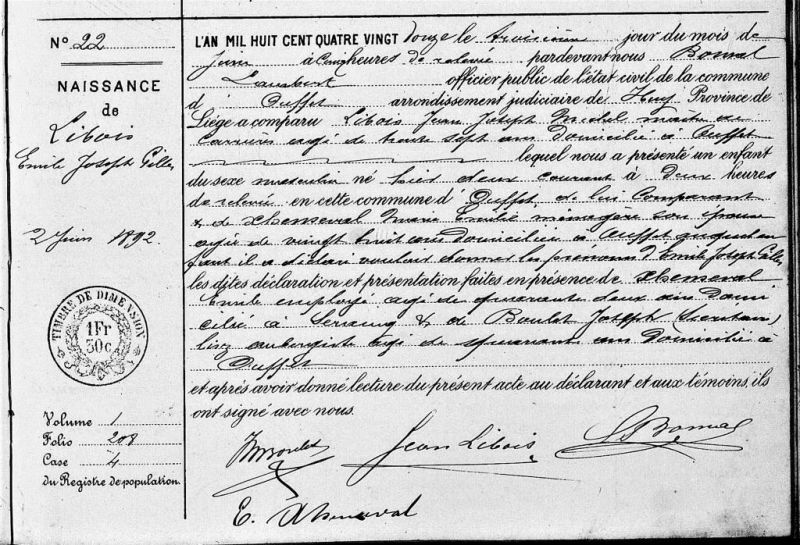 N° 22
NAISSANCE
de
Libois
Emile Joseph Gilles
2 Juin 1892.
TIMBRE DE DIMENSION
1 Fr
30 c.
Volume 1
Folio 208
Case 4
du Registre de population.
L'AN MIL HUIT CENT QUATRE VINGT douze le troisième jour du mois de
Juin à cinq heures de relevée pardevant nous Bonmal
Lambert officier public de l'état civil de la commune
d' Ouffet arrondissement judiciaire de Huy Province de
Liége a comparu Libois Jean Joseph Michel Maître de
Carrières agé de trente sept ans Domicilié à Ouffet
lequel nous a présenté un enfant
du sexe masculin né hier deux courant à deux heures
de relevée en cette commune d' Ouffet de lui Comparant
& de Xhenseval Marie Emilie ménagère son épouse
agée de vingt huit ans Domiciliée à Ouffet auquel en
fant il a déclaré vouloir donner les prénoms d'Emile Joseph Gilles
les dites déclaration et présentation faites en présence de Xhenseval
Emile employé agé de quarante deux ans Domi
cilié à Seraing & de Boulet Joseph (Secrétaire)
lisez aubergiste agé de quarante ans Domicilié à
Ouffet
et après avoir donné lecture du présent acte au déclarant et aux témoins, ils
ont signé avec nous.
Boulet Jean Libois L Bonmal
E. Xhenseval